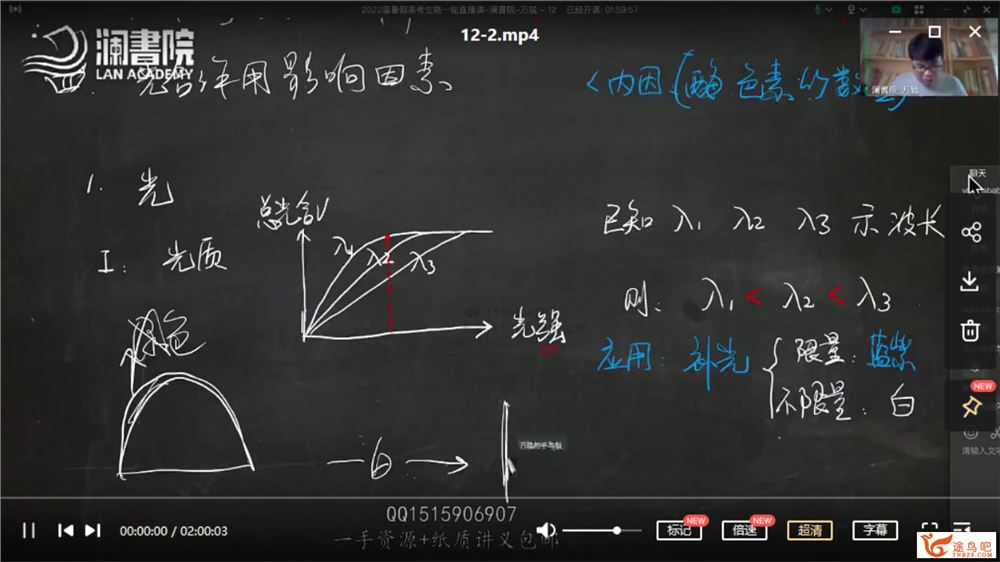 2022届暑假高考生物一轮直播课-澜書院-万猛 – 12 已经开课: 01:59:57
12-2.mp4
澜書院
LAN ACADEMY
四. 光合作用影响因素
内因(酶 色素的数
澜書院_万猛
1. 光
聊天
总光合V
λ1 λ2 λ3
光强
I: 光质
已知 λ1 λ2 λ3 示波长
则: λ1 < λ2 < λ3
应用: 补光
限量: 蓝紫
不限量: 白
NEW
请输入文字
QQ1515906907
一手资源+纸质讲义包邮
00:00:00 / 02:00:03
NEW
标记
NEW
倍速
超清
字幕
途鸟吧
TNBZS.COM